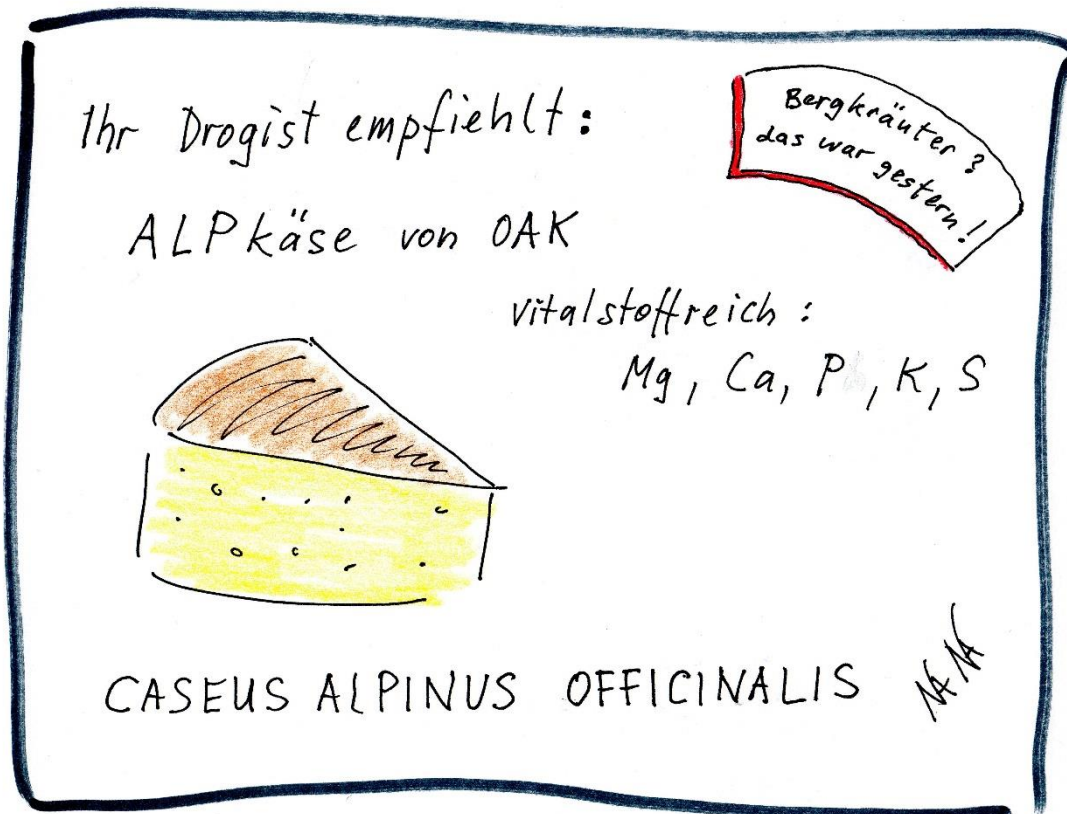 Ihr Drogist empfiehlt:
Bergkräuter?
das war gestern!
ALPkäse von OAK
vitalstoffreich:
Mg, Ca, P, K, S
CASEUS ALPINUS OFFICINALIS